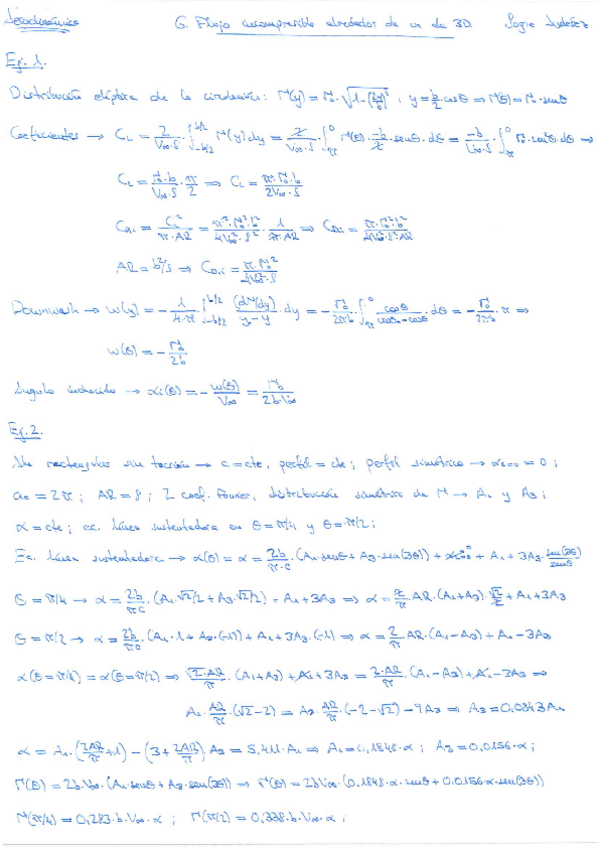 Aerodinámica 6. Flujo incompresible alrededor de un ala 3D.
Ej. 1.
Distribución elíptica de la circulación: Γ(y) = Γ₀·√(1-(2y/b)²), y = b/2·cosθ ⇒ Γ(θ) = Γ₀·senθ
Coeficientes → C_L = 2/(V∞·S)·∫_{-b/2}^{b/2} Γ(y)dy = 2/(V∞·S)·∫_π^0 Γ(θ)·-b/2·senθ·dθ = -b/(V∞·S)·∫_π^0 Γ₀·sen²θ·dθ ⇒
C_L = Γ₀·b/(V∞·S)·π/2 ⇒ C_L = π·Γ₀·b/(2V∞·S)
C_Di = C_L²/(π·AR) = π²·Γ₀²·b²/(4V∞²·S²)·1/(π·AR) ⇒ C_Di = π·Γ₀²·b²/(4V∞²·S²·AR)
AR = b²/S ⇒ C_Di = π·Γ₀²/(4V∞²·S)
Downwash → w(y) = -1/(4·π)·∫_{-b/2}^{b/2} (dΓ/dy)/(y₀-y)·dy = -Γ₀/(2πb)·∫_π^0 cosθ/(cosθ₀-cosθ)·dθ = -Γ₀/(2πb)·π ⇒
w(θ) = -Γ₀/(2b)
Ángulo inducido → αi(θ) = -w(θ)/V∞ = Γ₀/(2b·V∞)
Ej. 2.
Ala rectangular sin torsión → c = cte, perfil = cte; perfil simétrico → α_{L=0} = 0;
a₀ = 2π; AR = 8; 2 coef. Fourier, distribución simétrica de Γ → A₁ y A₃;
α = cte; ec. línea sustentadora en θ = π/4 y θ = π/2;
Ec. línea sustentadora → α(θ) = α = 2b/(π·c)·(A₁·senθ + A₃·sen(3θ)) + α_{L=0} + A₁ + 3A₃·sen(3θ)/senθ
θ = π/4 → α = 2b/(πc)·(A₁·√2/2 + A₃·√2/2) + A₁ + 3A₃ ⇒ α = 2/π·AR·(A₁+A₃)·√2/2 + A₁ + 3A₃
θ = π/2 → α = 2b/(πc)·(A₁·1 + A₃·(-1)) + A₁ + 3A₃·(-1) ⇒ α = 2/π·AR·(A₁-A₃) + A₁ - 3A₃
α(θ=π/4) = α(θ=π/2) ⇒ √2·AR/π·(A₁+A₃) + A₁ + 3A₃ = 2·AR/π·(A₁-A₃) + A₁ - 3A₃ ⇒
A₁·AR/π·(√2-2) = A₃·AR/π·(-2-√2) - 9A₃ ⇒ A₃ = 0,0843A₁
α = A₁·(2AR/π + 1) - (3 + 2AR/π)A₃ = 5,411·A₁ ⇒ A₁ = 0,1848·α; A₃ = 0,0156·α;
Γ(θ) = 2b·V∞·(A₁·senθ + A₃·sen(3θ)) ⇒ Γ(θ) = 2bV∞·(0,1848·α·senθ + 0,0156·α·sen(3θ))
Γ(π/4) = 0,283·b·V∞·α; Γ(π/2) = 0,338·b·V∞·α;